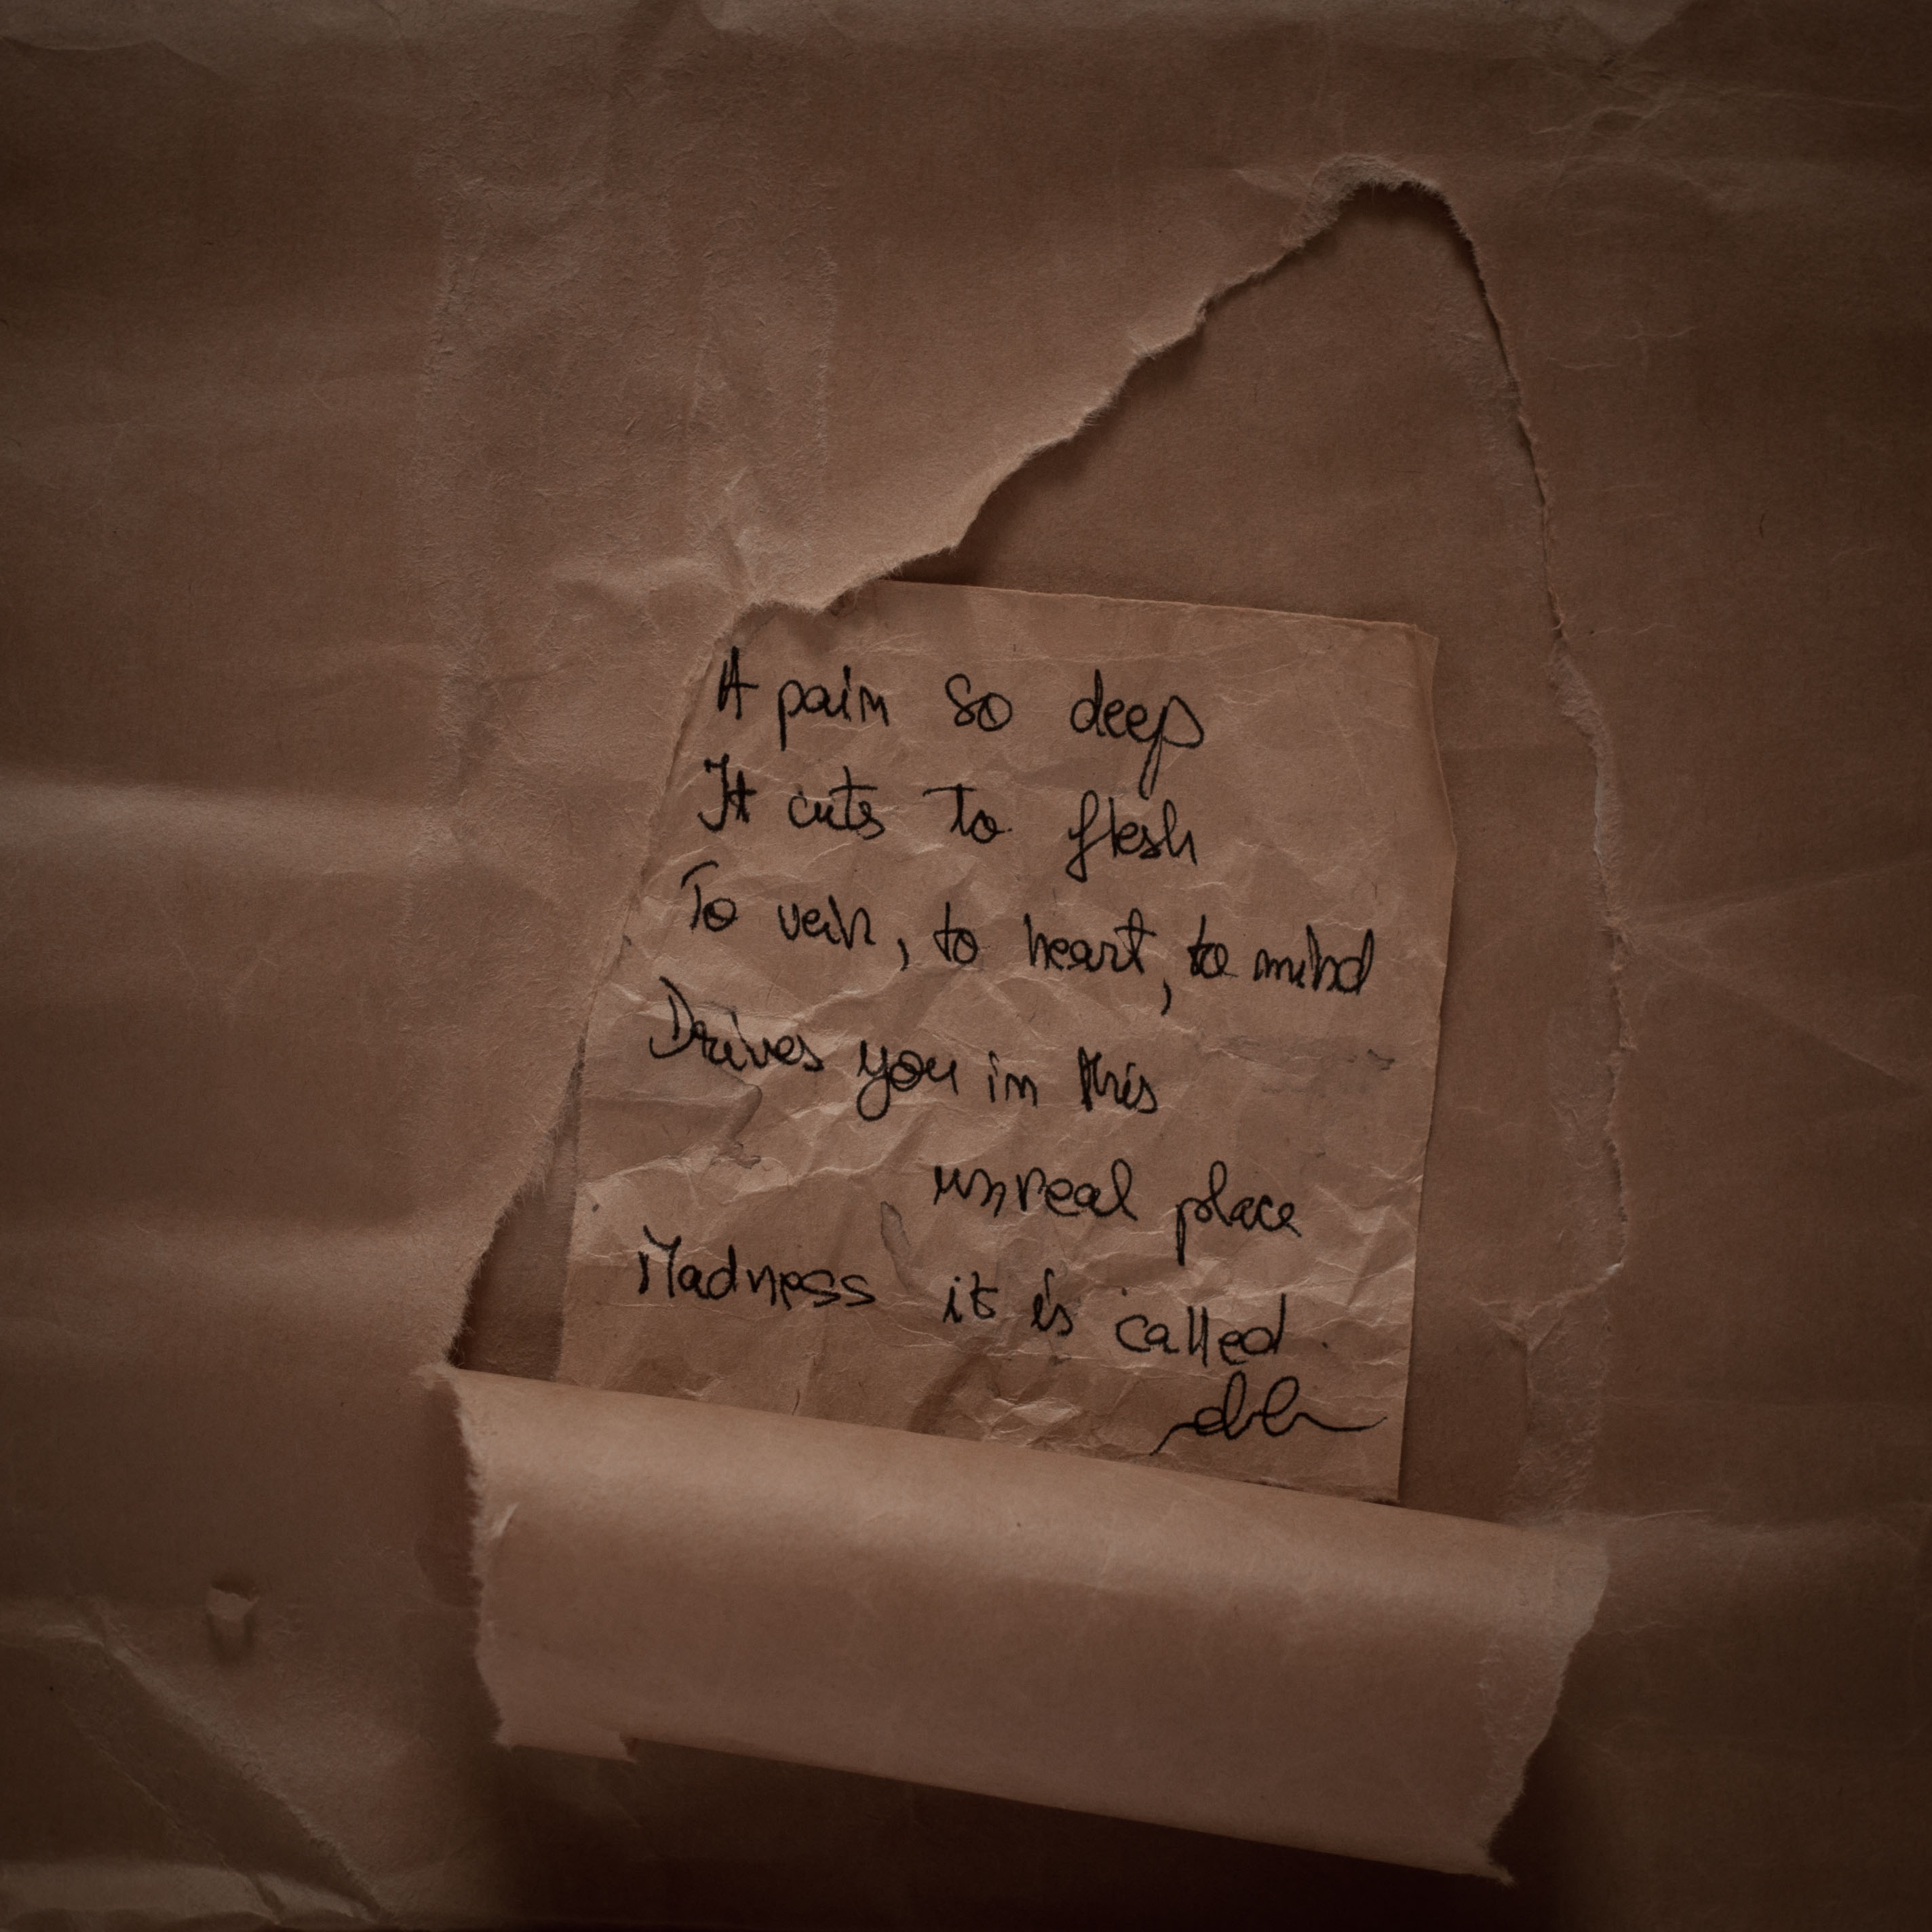 A pain so deep
It cuts To flesh
To vein, to heart, to mind
Drives you in this
unreal place
Madness it is called.